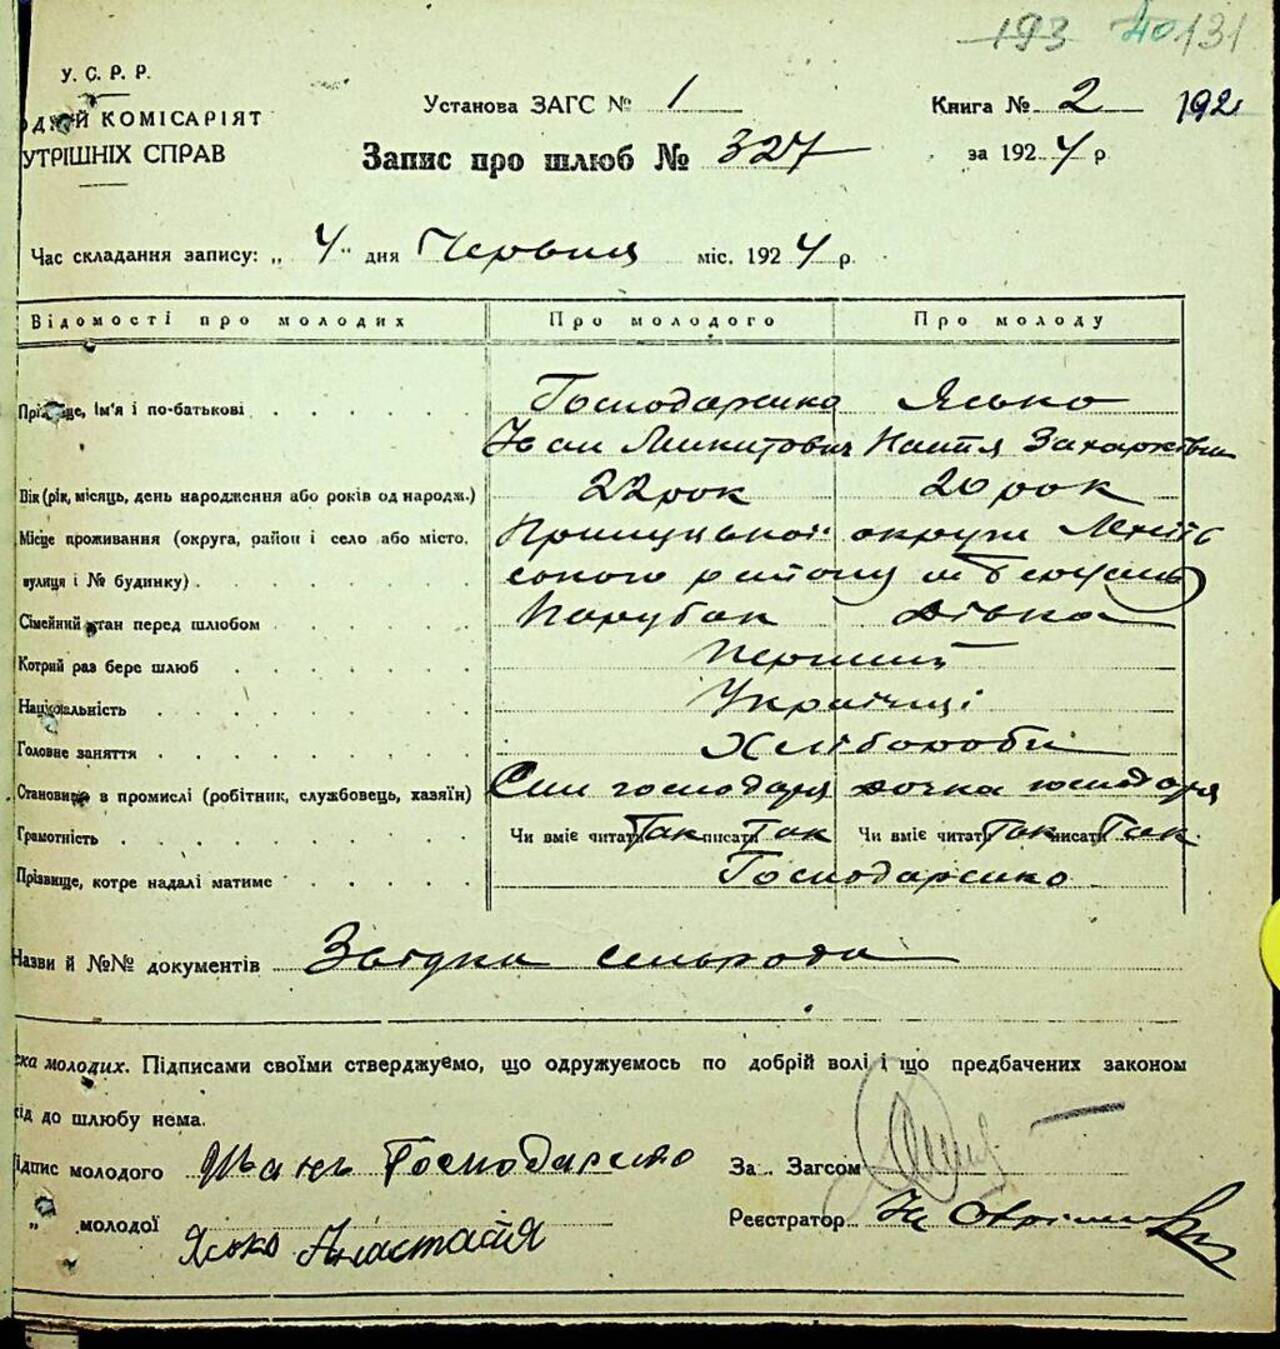 193 40 131
У. С. Р. Р.
Установа ЗАГС № 1
Книга № 2 192
КОМІСАРІЯТ
УТРІШНІХ СПРАВ
Запис про шлюб № 327
за 1924 р
Час складання запису: „ 4 " дня Червня міс. 1924 р.
Відомості про молодих Про молодого Про молоду
Прізвище, ім'я і по-батькові Господаренко Ясько
Іван Микитович Настя Захарківна
Вік (рік, місяць, день народження або років од народж.) 22 рок 20 рок
Місце проживання (округа, район і село або місто, Прилуцької округи
вулиця і № будинку) ського району
Сімейний стан перед шлюбом Парубок Дівка
Котрий раз бере шлюб Перший
Національність Українці
Головне заняття Хлібороби
Становище в промислі (робітник, службовець, хазяїн) Син господаря дочка господаря
Грамотність Чи вміє читати Так писати Так Чи вміє читати Так писати Так.
Прізвище, котре надалі матиме Господаренко
Назви й №№ документів Звідка сельради
ска молодих. Підписами своїми стверджуємо, що одружуємось по добрій волі і що предбачених законом
код до шлюбу нема.
ідпис молодого Иванъ Господаренко За Загсом
„ молодої Ясько Анастасія
Реєстратор